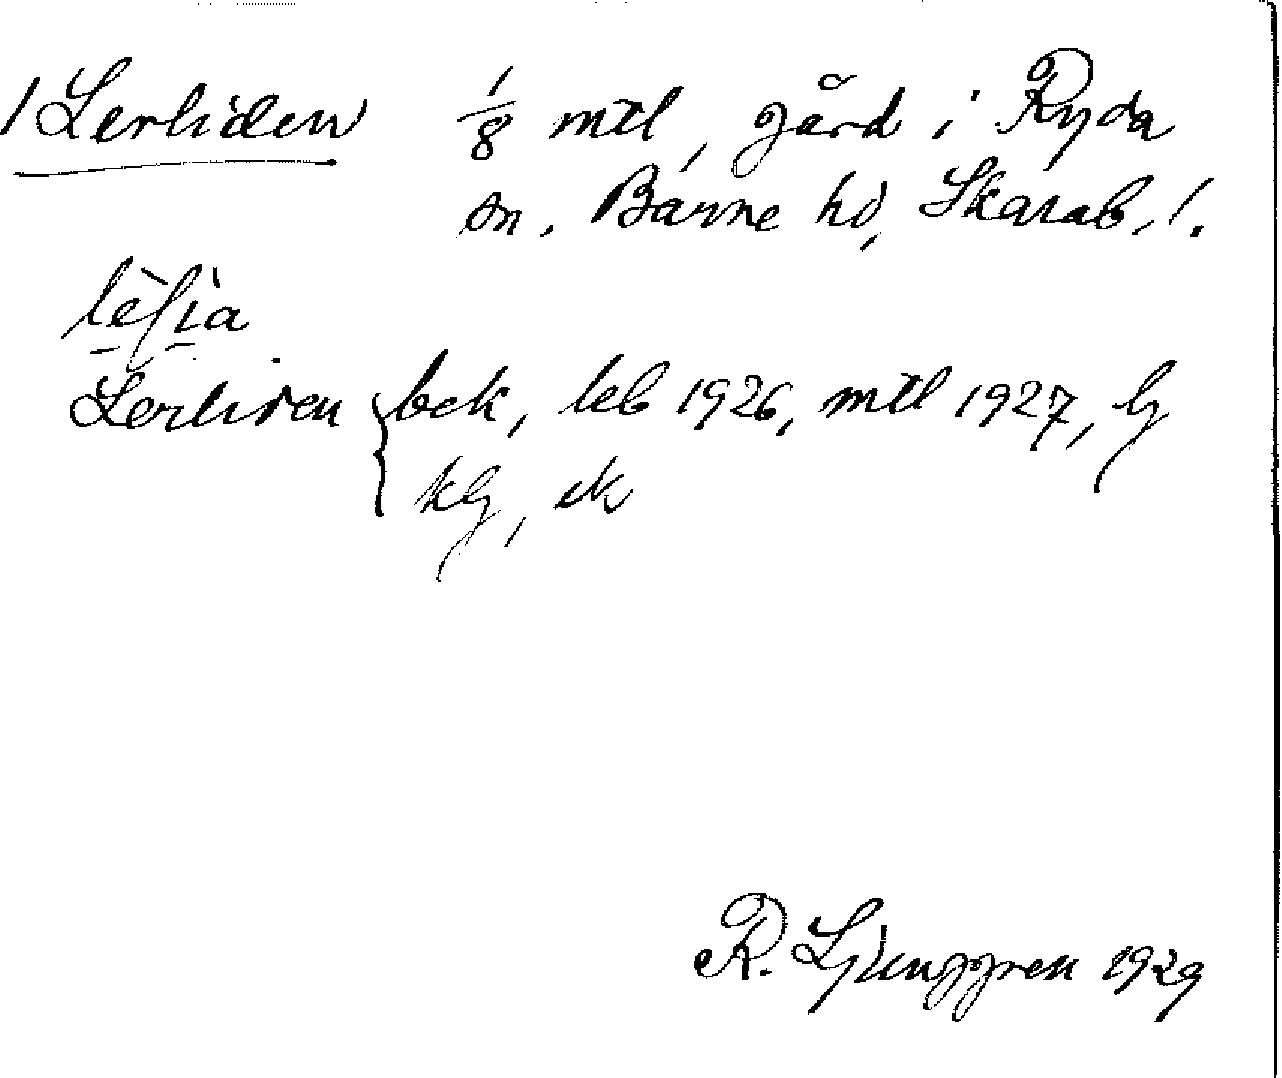 / Lerliden 1/8 mtl, gård i Ryda
sn. Barne hd, Skarab. l.
Lerliden { bok, leb 1926, mtl 1927, Gj
kGj, ek
R. Ljunggren 1929